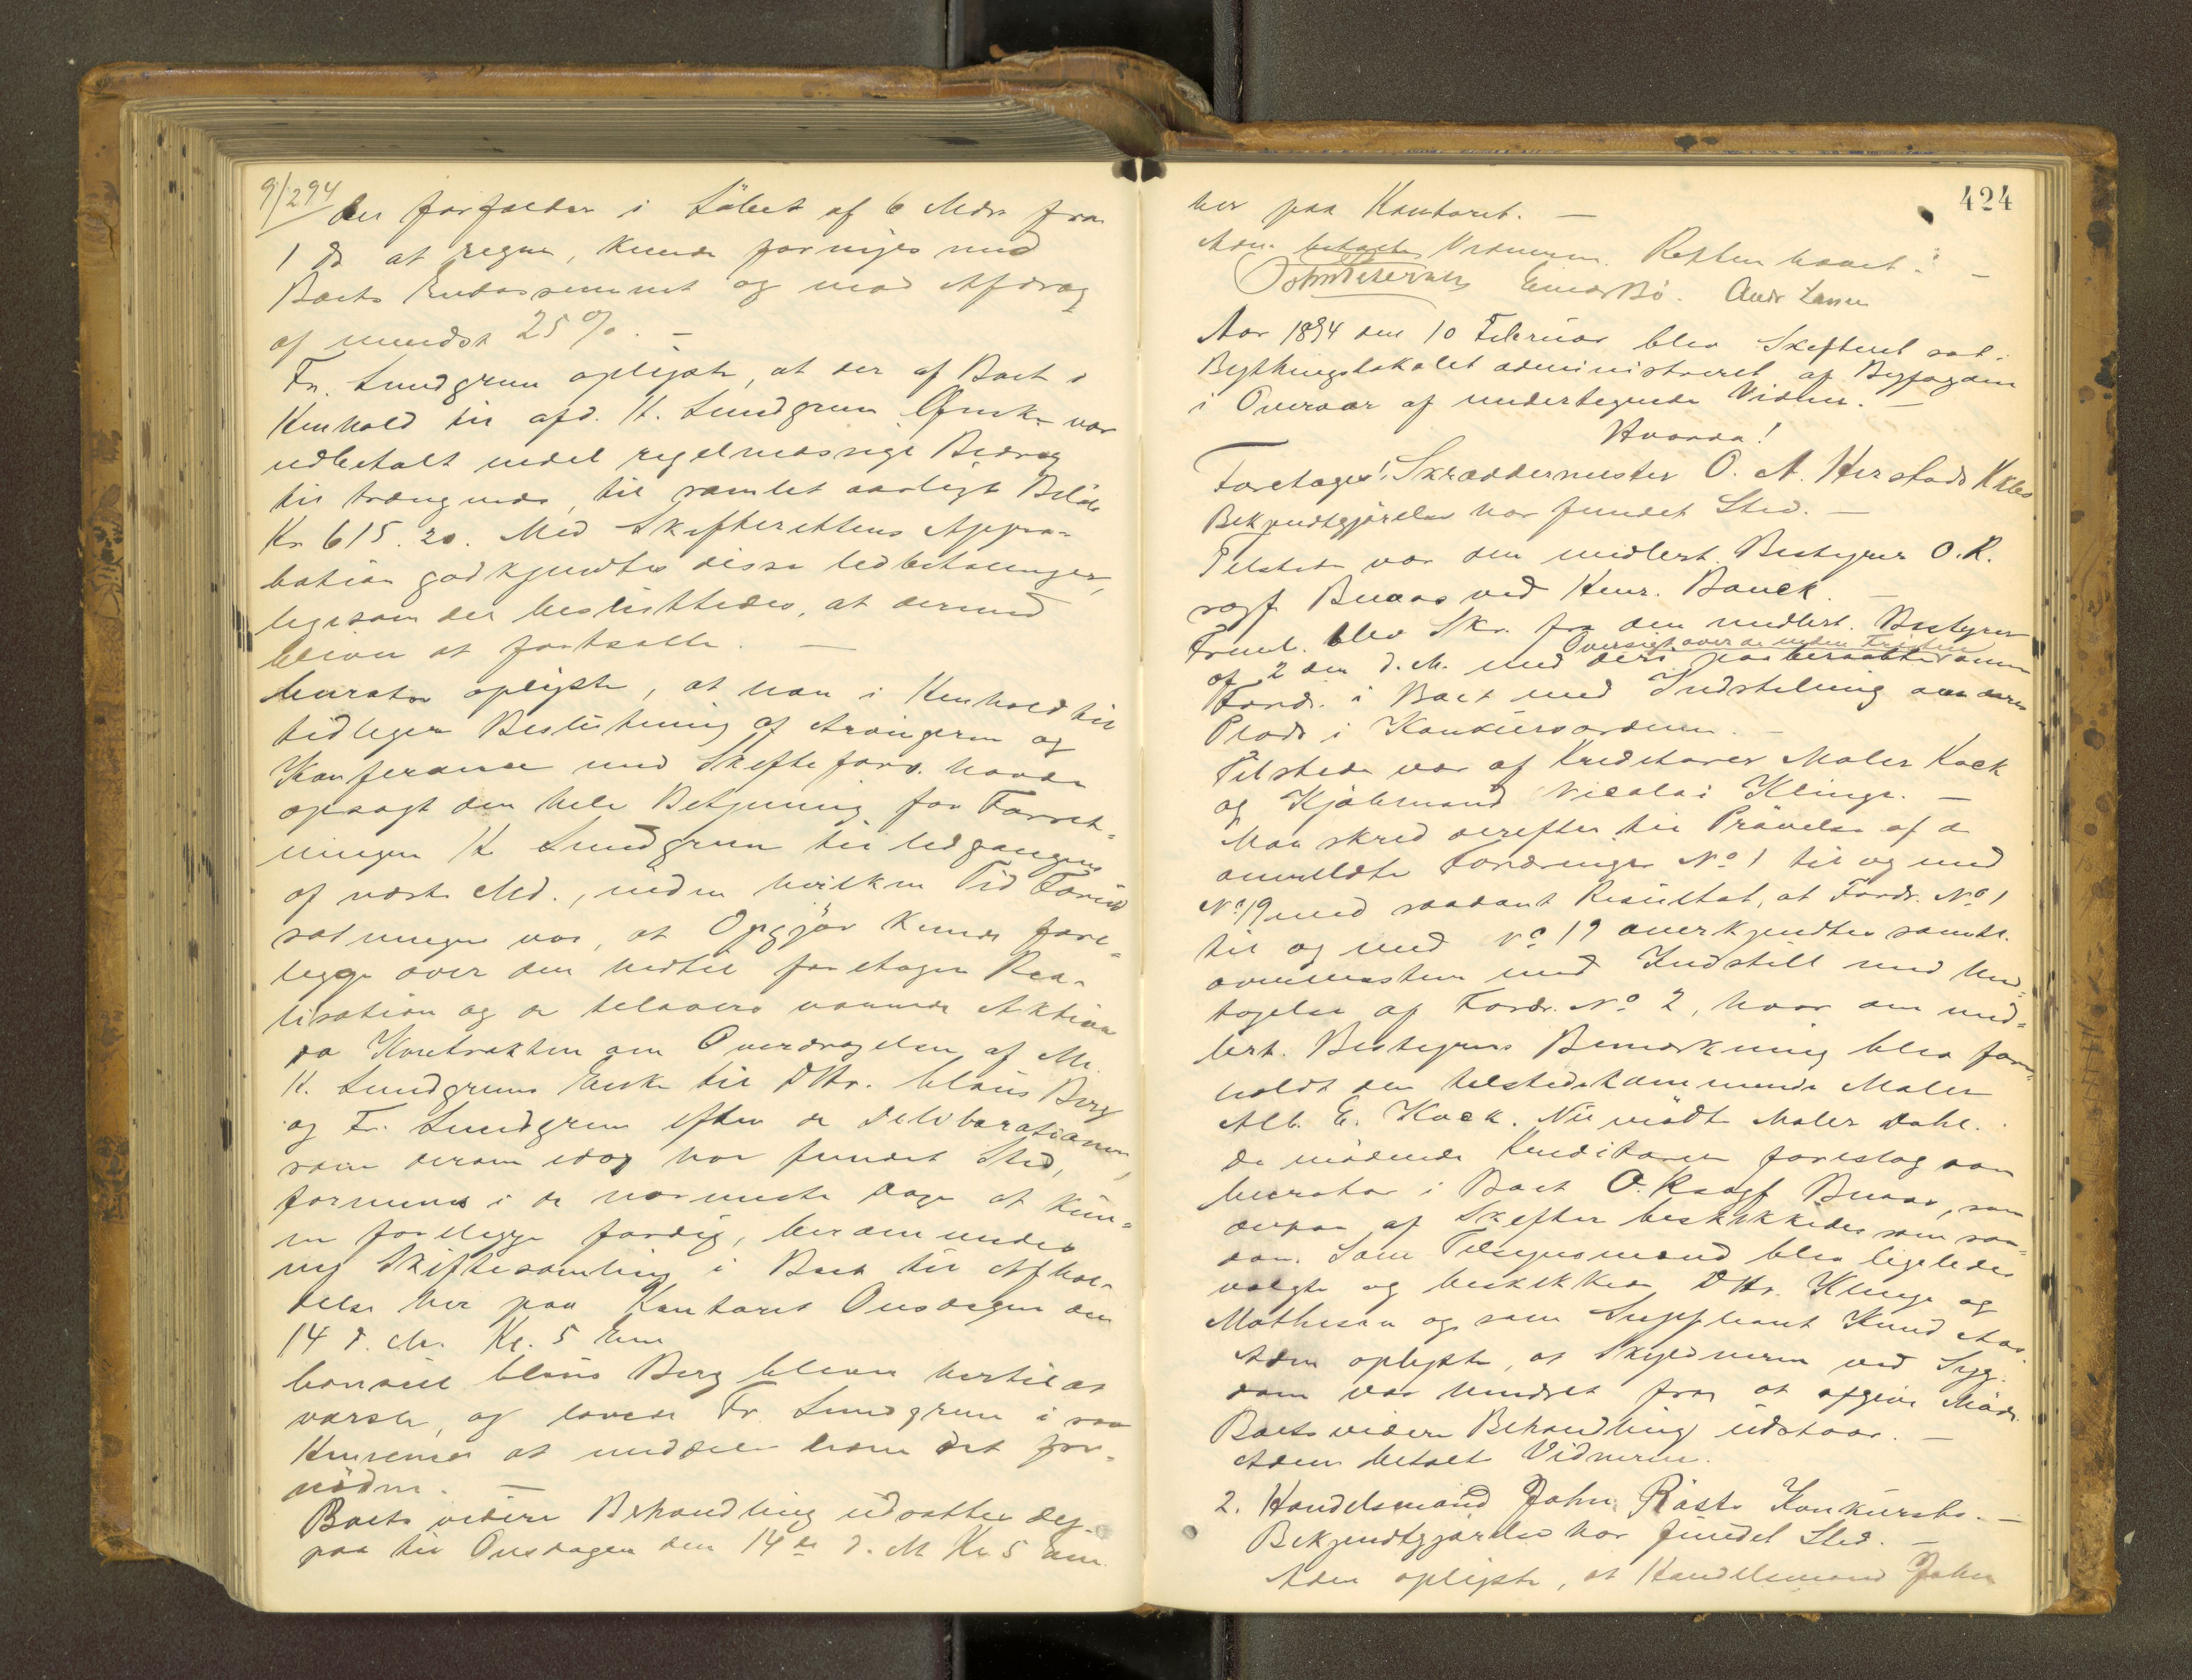 9/2 94
der forfalder i Löbet af 6 Mdr fra
1 ds at regne, kunde fornyes med
Boets Endossement og mod Afdrag
af mindst 25%. –
Fr. Lundgren oplyste, at der af Boet i
Henhold til afd. H. Lundgrens Önske var
udbetalt endel regelmæssige Bidrag
til trængende, til samlet aarligt Belöb
Kr 615.20. Med Skifterettens Appro-
bation godkjendtes disse Udbetalinger,
ligesom det besluttedes, at dermed
bliver at fortsætte. –
Curator oplyste, at han i Henhold til
tidligere Beslutning af Arvingerne og
Konferance med Skifteforv. havde
opsagt den hele Betjening for Forret-
ningen H. Lundgren til Udgangen
af næste Md., inden hvilken Tid Forud
sætningen var, at Opgjör kunde fore-
legges over den hidtil foretagne Rea-
lisation og de tilovers værende Aktiva
da Kontrakten om Overdragelsen af M.
H. Lundgrens Enke til DHr. Claus Berg
og Fr. Lundgren efter de Deliberationer,
som derom idag har fundet Sted,
formenes i de nærmeste Dage at kun-
ne forelegges færdig, berammedes
ny Skiftesamling i Boet til Afhol-
delse her paa Kontoret Onsdagen den
14 d. M. Kl. 5 Em
Consul Claus Berg bliver hertil at
varsle, og lovede Fr. Lundgren i saa
Henseende at meddele ham det for-
nödne. –
Boets videre Behandling udsattes der-
paa til Onsdagen den 14de d. M Kl 5 Em.
424
her paa Kontoret. –
Adm. betalte Vidnerne. Retten hævet. –
Einar Bö. Andr Larsen
Aar 1894 den 10 Februar blev Skifteret sat i
Bythingslokalet administreret af Byfogden
i Overvær af undertegnede Vidner. –
Hvorda!
Foretages: Skræddermester O. A. Herstads Kkbo
Bekjendtgjörelse har fundet Sted. –
Tilstede var den midlert. Bestyrer O.R.
sagf. Buaas ved Henr. Bauck. –
Freml. blev Skr. fra den midlert. Bestyrer
Oversigt over de inden Fristen
af 2 den d. M. med deri paaberaabte anm
Fordr. i Boet med Indstilling om deres
Plads i Konkursordenen. –
Tilstede var af Kreditorer Maler Kock
og Kjöbmand Nicolai Klinge. –
Man skred derefter til Prövelse af de
anmeldte Fordringer No 1 til og med
No 19 med saadant Resultat, at Fordr. No 1
til og med No 19 anerkjendtes samtl.
overensstem med Indstill med Und-
tagelse af Fordr. No 2, hvor den mid-
lert. Bestyrers Bemærkning blev fore-
holdt den tilstedekommende Maler
Alb. E. Kock. Nu mödte Maler Dahl.
De mödende Kreditorer foreslog som
Curator i Boet O.Rsagf Buaas, som
derpaa af Skifter beskikkedes som saa-
dan. Som Tilsynsmænd blev ligeledes
valgte og beskikkede DHr. Klinge og
Mathisen og som Suppleant Knud Aas.
Adm oplyste, at Skyldneren ved Syg-
dom var hindret fra at afgive Möde.
Boets videre Behandling udstaar. –
Adm betalte Vidnerne.
2. Handelsmand John Röste Konkursbo. –
Bekjendtgjörelse har fundet Sted. –
Adm oplyste, at Handelsmand John